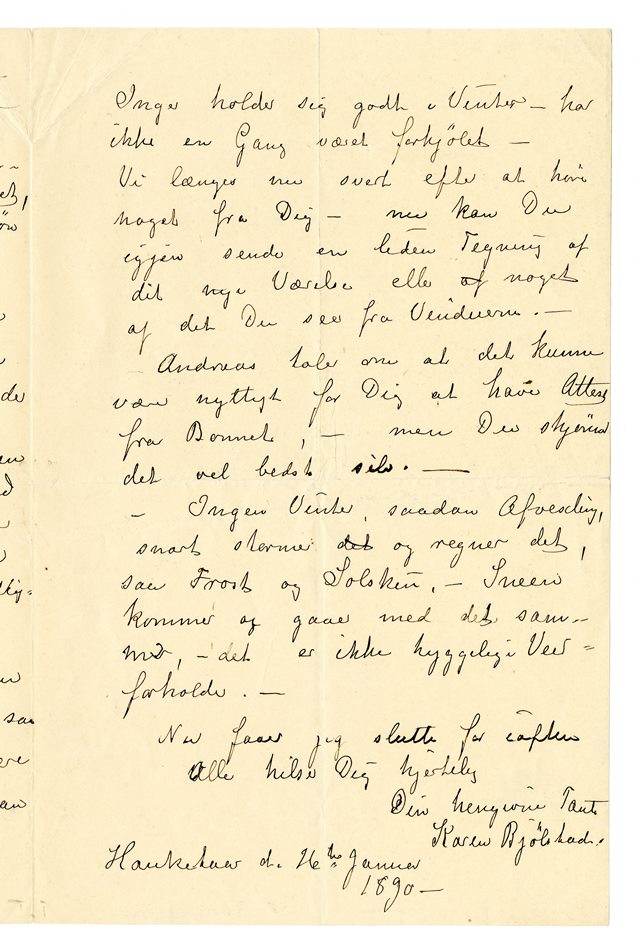 Inger holder sig godt i Vinter – har
ikke en Gang været forkjölet –
Vi længes nu svert efter at höre
noget fra Dig – nu kan Du
igjen sende en liden Tegning af
dit nye Værelse eller af noget
af det Du see fra Vinduerne. –
Andreas taler om at det kunne
være nyttigt for Dig at have Attest
fra Bonnet, – men Du skjönner
det vel bedst selv. –
– Ingen Vinter, saadan Afvexling,
snart stormer det og regner det,
saa Frost og Solskin, – Sneen
kommer og gaaer med det sam-
me, – det er ikke hyggelige Veir=
forholde. –
Nu faaer jeg slutte for iaften
Alle hilse Dig hjertelig
Din hengivne Tante
Karen Bjölstad.
Hauketoer d. 26th Januar
1890 –
de
saa